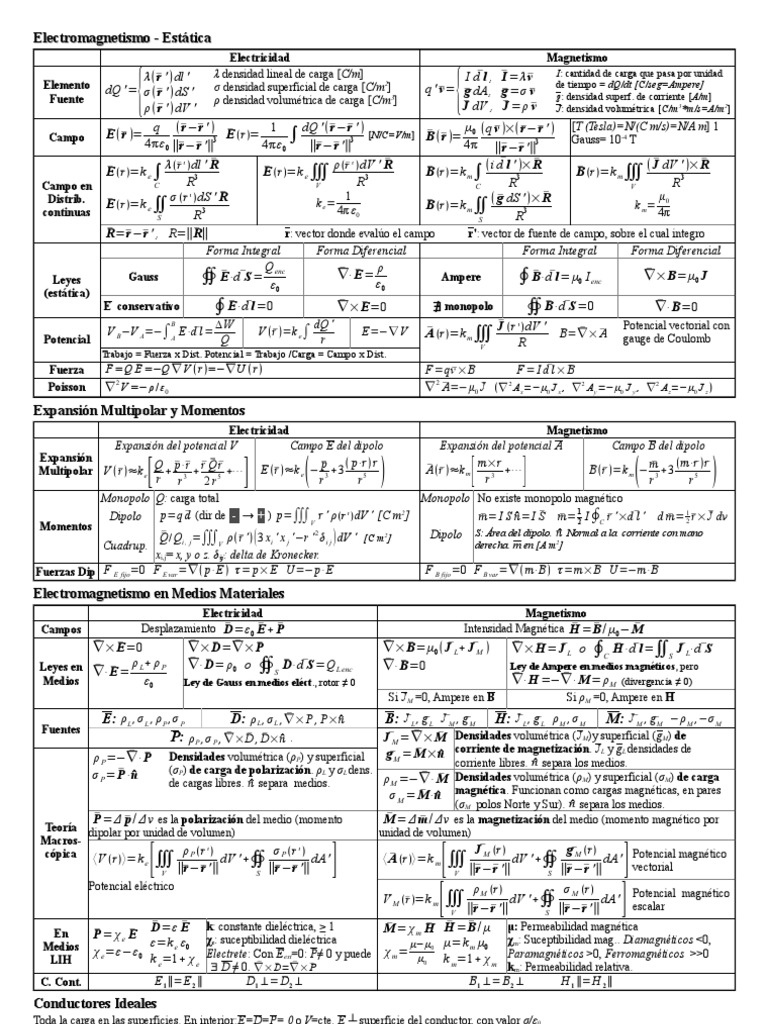 Electromagnetismo - Estática
Electricidad Magnetismo
Elemento Fuente
dQ'={ λ(r̄')dl' σ(r̄')dS' ρ(r̄')dV'
λ densidad lineal de carga [C/m]
σ densidad superficial de carga [C/m²]
ρ densidad volumétrica de carga [C/m³]
q'v̄={ I d l̄, Ī=λv̄ ḡ dA, ḡ=σv̄ J̄ dV, J̄=ρv̄
I: cantidad de carga que pasa por unidad
de tiempo = dQ/dt [C/seg=Ampere]
ḡ: densidad superf. de corriente [A/m]
J̄: densidad volumétrica [C/m³*m/s=A/m²]
Campo
E(r̄)=q/4πε₀ (r̄−r̄')/||r̄−r̄'||³ E(r)=1/4πε₀ ∫ dQ'(r̄−r̄')/||r̄−r̄'||³ [N/C=V/m]
B̄(r̄)=μ₀/4π (q v̄)×(r̄−r̄')/||r̄−r̄'||³
[T (Tesla)=N/(C m/s)=N/A m] 1
Gauss= 10⁻⁴ T
Campo en Distrib. continuas
E(r)=kₑ∫_C λ(r̄')dl' R̄/R³ E(r)=kₑ∭_V ρ(r̄')dV' R̄/R³
E(r)=kₑ∬_S σ(r')dS' R̄/R³ kₑ=1/4πε₀
B(r)=kₘ∫_C (i d l̄')×R̄/R³ B(r)=kₘ∭_V (J̄ dV')×R̄/R³
B(r)=kₘ∬_S (ḡ dS')×R̄/R³ kₘ=μ₀/4π
R=r̄−r̄', R=||R|| r̄: vector donde evalúo el campo r̄': vector de fuente de campo, sobre el cual integro
Leyes (estática)
Forma Integral Forma Diferencial Forma Integral Forma Diferencial
Gauss ∯ Ē·d̄S=Q_enc/ε₀ ∇·E=ρ/ε₀ Ampere ∮ B̄·d̄l=μ₀ I_enc ∇×B=μ₀J
E conservativo ∮ E·dl=0 ∇×E=0 ∄ monopolo ∯ B̄·d̄S=0 ∇·B=0
Potencial
V_B−V_A=−∫_A^B E·dl=ΔW/Q V(r)=kₑ∫dQ'/r E=−∇V
Trabajo = Fuerza x Dist. Potencial = Trabajo /Carga = Campo x Dist.
Ā(r)=kₘ∭_V J̄(r')dV'/R B=∇×A
Potencial vectorial con
gauge de Coulomb
Fuerza F=QE=−Q∇V(r)=−∇U(r) F=qv×B F=I dl×B
Poisson ∇²V=−ρ/ε₀ ∇²A=−μ₀J (∇²Aₓ=−μ₀Jₓ, ∇²A_y=−μ₀J_y, ∇²A_z=−μ₀J_z)
Expansión Multipolar y Momentos
Electricidad Magnetismo
Expansión Multipolar
Expansión del potencial V Campo Ē del dipolo Expansión del potencial Ā Campo B̄ del dipolo
V(r)≈kₑ[Q/r+p̄·r̄/r³+r̄Q̄r̄/2r⁵+···] E(r)≈kₑ(−p/r³+3(p·r)r/r⁵) Ā(r)≈kₘ[m×r/r³+···] B(r)=kₘ(−m̄/r³+3(m·r)r/r⁵)
Momentos
Monopolo Q: carga total
Dipolo p=qd̄ (dir de - → +) p=∭_V r'ρ(r')dV' [C m²]
Cuadrup. Q̄/Q_i,j=∭_V ρ(r')(3xᵢ'xⱼ'−r'²δᵢⱼ)dV' [C m²]
xᵢ,ⱼ= x, y o z. δᵢⱼ: delta de Kronecker.
Monopolo No existe monopolo magnético
Dipolo m̄=ISn̂=IS̄ m̄=½I∮_C r'×dl' dm=½r×J̄dv
S: Área del dipolo. n̂: Normal a la corriente con mano
derecha. m̄ en [A m²]
Fuerzas Dip F_E fijo=0 F_E var=∇(p·E) τ=p×E U=−p·E F_B fijo=0 F_B var=∇(m·B) τ=m×B U=−m·B
Electromagnetismo en Medios Materiales
Electricidad Magnetismo
Campos Desplazamiento D̄=ε₀Ē+P̄ Intensidad Magnética H̄=B̄/μ₀−M̄
Leyes en Medios
∇×E=0 ∇·E=(ρ_L+ρ_P)/ε₀
∇×D=∇×P
∇·D=ρ_L o ∯_S D·dS=Q_L enc
Ley de Gauss en medios eléct., rotor ≠ 0
∇×B=μ₀(J_L+J_M) ∇·B=0
∇×H=J_L o ∮_C H·dl=∬_S J_L·dS
Ley de Ampere en medios magnéticos, pero
∇·H=−∇·M=ρ_M (divergencia ≠ 0)
Si J_M=0, Ampere en B Si ρ_M=0, Ampere en H
Fuentes
Ē: ρ_L,σ_L,ρ_P,σ_P D̄: ρ_L,σ_L,∇×P,P×n̂
P̄: ρ_P,σ_P,∇×D,D×n̂.
B̄: J_L,g_L J_M,g_M H̄: J_L,g_L ρ_M,σ_M M̄: J_M,g_M −ρ_M,−σ_M
Teoría Macros- cópica
ρ_P=−∇·P
σ_P=P̄·n̂
Densidades volumétrica (ρ_P) y superficial
(σ_P) de carga de polarización. ρ_L y σ_L dens.
de cargas libres. n̂ separa medios.
J_M=∇×M
g_M=M×n̂
Densidades volumétrica (J_M) y superficial (g_M) de
corriente de magnetización. J_L y g_L densidades de
corriente libres. n̂ separa los medios.
ρ_M=−∇·M
σ_M=M·n̂
Densidades volumétrica (ρ_M) y superficial (σ_M) de carga
magnética. Funcionan como cargas magnéticas, en pares
(σ_M polos Norte y Sur). n̂ separa los medios.
P̄=Δp̄/Δv es la polarización del medio (momento
dipolar por unidad de volumen)
M̄=Δm̄/Δv es la magnetización del medio (momento magnético por
unidad de volumen)
⟨V(r)⟩=kₑ[∭_V ρ_P(r')/||r̄−r̄'|| dV'+∯_S σ_P(r')/||r̄−r̄'|| dA']
Potencial eléctrico
⟨Ā(r)⟩=kₘ[∭_V J_M(r')/||r̄−r̄'|| dV'+∯_S g_M(r')/||r̄−r̄'|| dA']
Potencial magnético
vectorial
V_M(r)=kₘ[∭_V ρ_M(r)/||r̄−r̄'|| dV'+∯_S σ_M(r)/||r̄−r̄'|| dA']
Potencial magnético
escalar
En Medios LIH
P=χₑE χₑ=ε−ε₀
D̄=εĒ ε=kₑε₀ kₑ=1+χₑ
k: constante dieléctrica, ≥ 1
χₑ: suceptibilidad dieléctrica
Electrete: Con E_ext=0: P̄≠ 0 y puede
∃ D̄≠ 0. ∇×D=∇×P
M=χₘH χₘ=(μ−μ₀)/μ₀
H̄=B̄/μ μ=kₘμ₀ kₘ=1+χₘ
μ: Permeabilidad magnética
χₘ: Suceptibilidad mag.. Diamagnéticos <0,
Paramagnéticos >0, Ferromagnéticos >>0
kₘ: Permeabilidad relativa.
C. Cont. E₁∥=E₂∥ D₁⊥=D₂⊥ B₁⊥=B₂⊥ H₁∥=H₂∥
Conductores Ideales
Toda la carga en las superficies. En interior: E=D=P= 0 o V=cte. E ⊥ superficie del conductor, con valor σ/ε₀